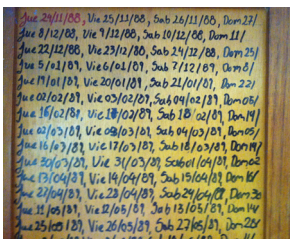 Jue 24/11/88, Vie 25/11/88, Sab 26/11/88, Dom 27/
Jue 8/12/88, Vie 9/12/88, Sab 10/12/88, Dom 11/
Jue 22/12/88, Vie 23/12/88, Sab 24/12/88, Dom 25/
Jue 5/01/89, Vie 6/01/89, Sab 7/12/89, Dom 8/
Jue 19/01/89, Vie 20/01/89, Sab 21/01/89, Dom 22/
Jue 02/02/89, Vie 03/02/89, Sab 04/02/89, Dom 05/
Jue 16/02/89, Vie 17/02/89, Sab 18/02/89, Dom 19/
Jue 02/03/89, Vie 03/03/89, Sab 04/03/89, Dom 05/
Jue 16/03/89, Vie 17/03/89, Sab 18/03/89, Dom 19/
Jue 30/03/89, Vie 31/03/89, Sab 01/04/89, Dom 02
Jue 13/04/89, Vie 14/04/89, Sab 15/04/89, Dom 16/
Jue 27/04/89, Vie 28/04/89, Dom 30
Jue 11/05/89, Vie 12/05/89, Sab 13/05/89, Dom 14/
Jue 25/05/89, Vie 26/05/89, Sab 27/05/89, Dom 28/